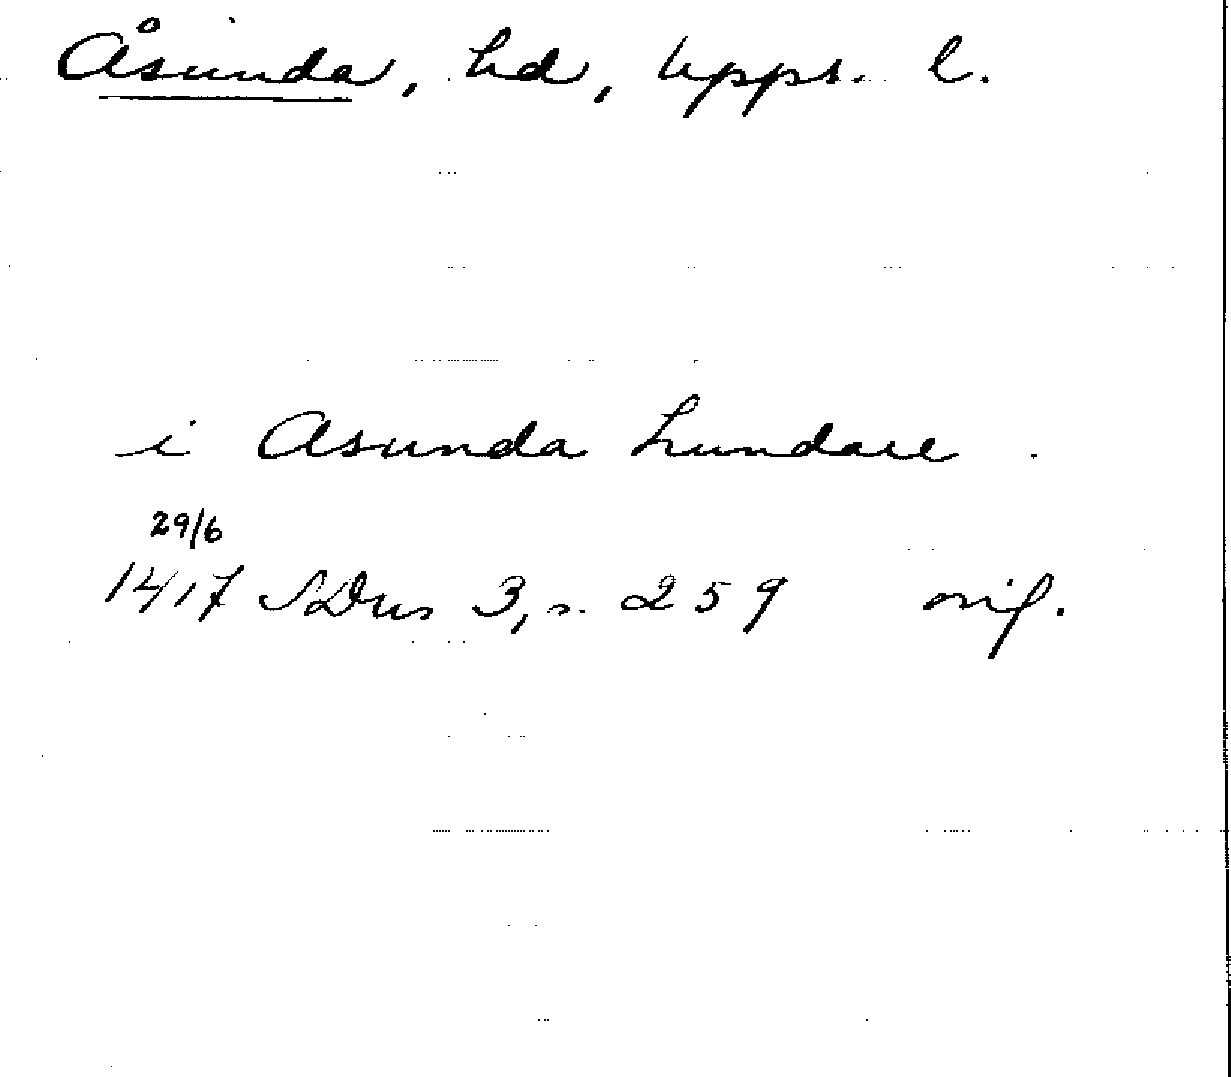 Åsunda, hd, Upps. l.
i Asunda hundare
29/6
1417 SDns 3, s. 259 orig.